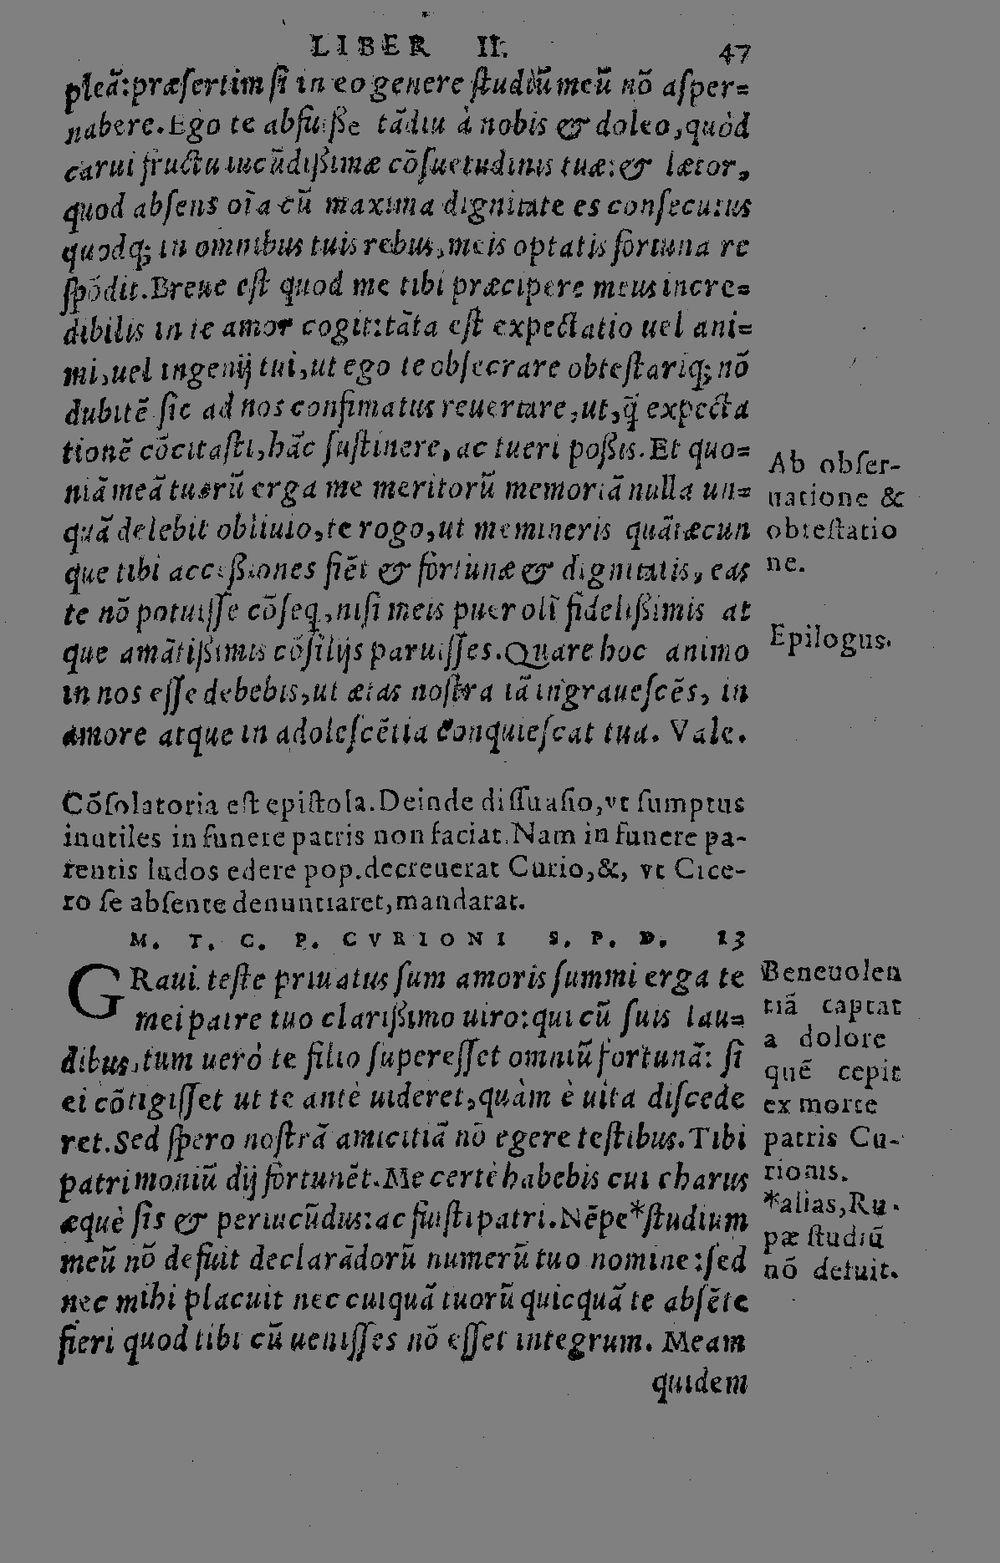 LIBER II. 47
pleã: præsertim si in eo genere studiũ meũ nõ asper=
nabere. Ego te abfuisse tãdiu à nobis & doleo, quòd
carui fructu iucũdissimæ cõsuetudinis tuæ: & lætor,
quod absens oĩa cũ maxima dignitate es consecutus
quodq; in omnibus tuis rebus, meis optatis fortuna re
spõdit. Breue est quod me tibi præcipere meus incre=
dibilis in te amor cogit: tãta est expectatio uel ani=
mi, uel ingenij tui, ut ego te obsecrare obtestariq; nõ
dubitẽ sic ad nos confirmatus reuertare, ut, q̃ expecta
tionẽ cõcitasti, hãc sustinere, ac tueri possis. Et quo=
niã meã tuorũ erga me meritorũ memoriã nulla un=
quã delebit obliuio, te rogo, ut memineris quãtæcun
que tibi accessiones fiẽt & fortunæ & dignitatis, eas
te nõ potuisse cõseq, nisi meis puer olĩ fidelissimis at
que amãtissimis cõsilijs paruisses. Quare hoc animo
in nos esse debebis, ut ætas nostra iã ingrauescẽs, in
amore atque in adolescẽtia conquiescat tua. Vale.
Ab obser-
uatione &
obtestatio
ne.
Epilogus.
Cõsolatoria est epistola. Deinde dissuasio, vt sumptus
inutiles in funere patris non faciat. Nam in funere pa-
rentis ludos edere pop. decreuerat Curio, &, vt Cice-
ro se absente denuntiaret, mandarat.
M. T. C. P. CVRIONI S. P. D. 13
GRaui teste priuatus sum amoris summi erga te
mei patre tuo clarissimo uiro: qui cũ suis lau=
dibus, tum uerò te filio superesset omniũ fortunã: si
ei cõtigisset ut te antè uideret, quàm è uita discede
ret. Sed spero nostrã amicitiã nõ egere testibus. Tibi
patrimoniũ dij fortunẽt. Me certè habebis cui charus
æquè sis & periucũdus: ac fuisti patri. Nẽpe *studium
meũ nõ defuit declarãdorũ numerũ tuo nomine: sed
nec mihi placuit nec cuiquã tuorũ quicquã te absẽte
fieri quod tibi cũ uenisses nõ esset integrum. Meam
quidem
Beneuolen
tiã captat
a dolore
quẽ cepit
ex morte
patris Cu-
rionis.
*alias, Ru-
pæ studiũ
nõ defuit.